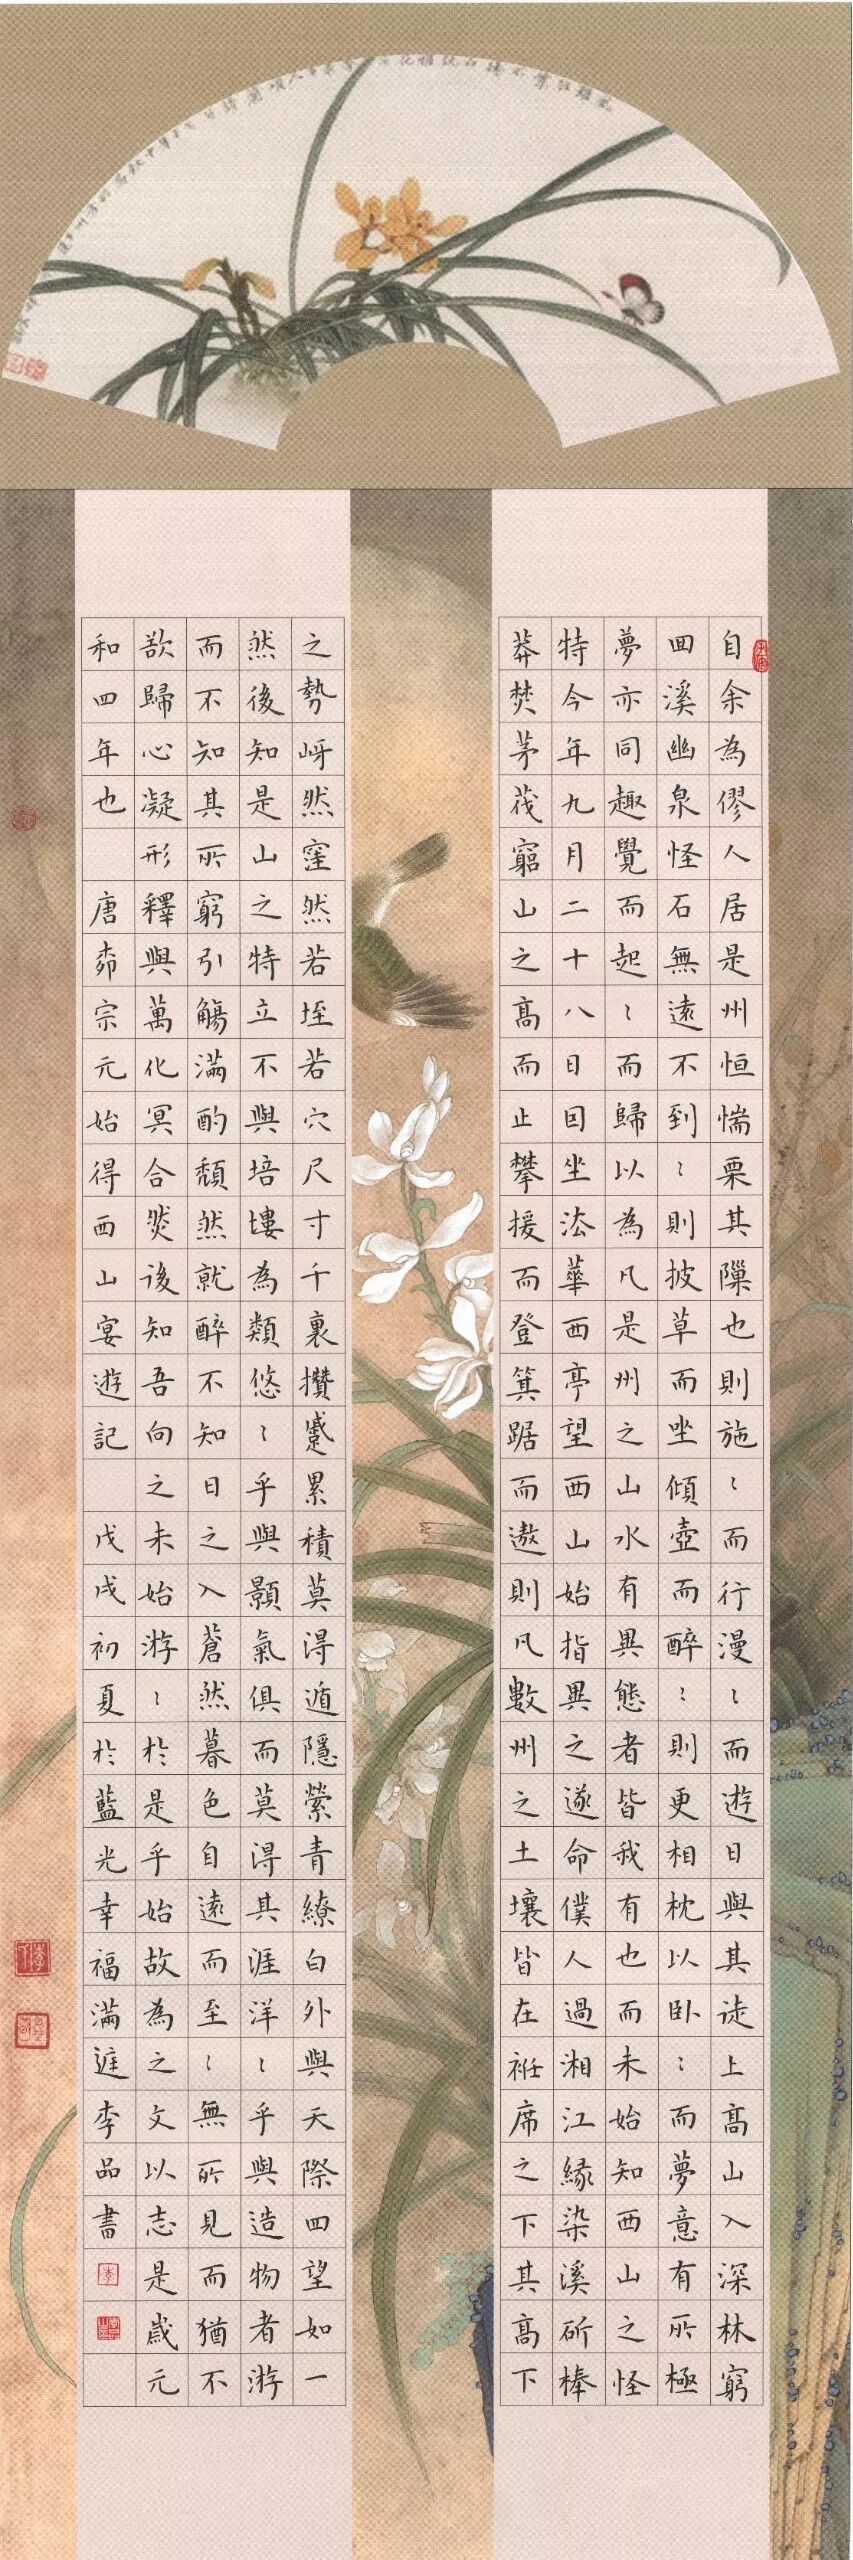 自余為僇人居是州恒惴栗其隟也則施〻而行漫〻而遊日與其徒上高山入深林窮
回溪幽泉怪石無遠不到〻則披草而坐傾壺而醉〻則更相枕以臥〻而夢意有所極
夢亦同趣覺而起〻而歸以為凡是州之山水有異態者皆我有也而未始知西山之怪
特今年九月二十八日因坐法華西亭望西山始指異之遂命僕人過湘江緣染溪斫榛
莽焚茅茷窮山之高而止攀援而登箕踞而遨則凡數州之土壤皆在衽席之下其高下
之勢岈然窪然若垤若穴尺寸千裏攢蹙累積莫得遁隱縈青繚白外與天際四望如一
然後知是山之特立不與培塿為類悠〻乎與顥氣俱而莫得其涯洋〻乎與造物者游
而不知其所窮引觴滿酌頹然就醉不知日之入蒼然暮色自遠而至〻無所見而猶不
欲歸心凝形釋與萬化冥合然後知吾向之未始游〻於是乎始故為之文以志是歲元
和四年也 唐柳宗元始得西山宴遊記 戊戌初夏於藍光幸福滿庭李品書